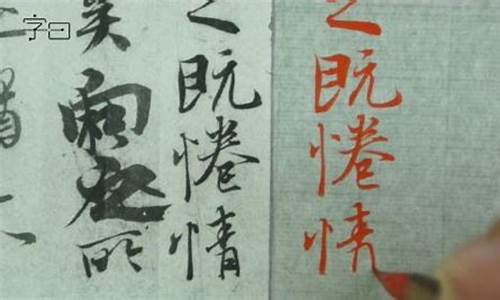 之既惓情
之既惓情
矣向之所
字曰